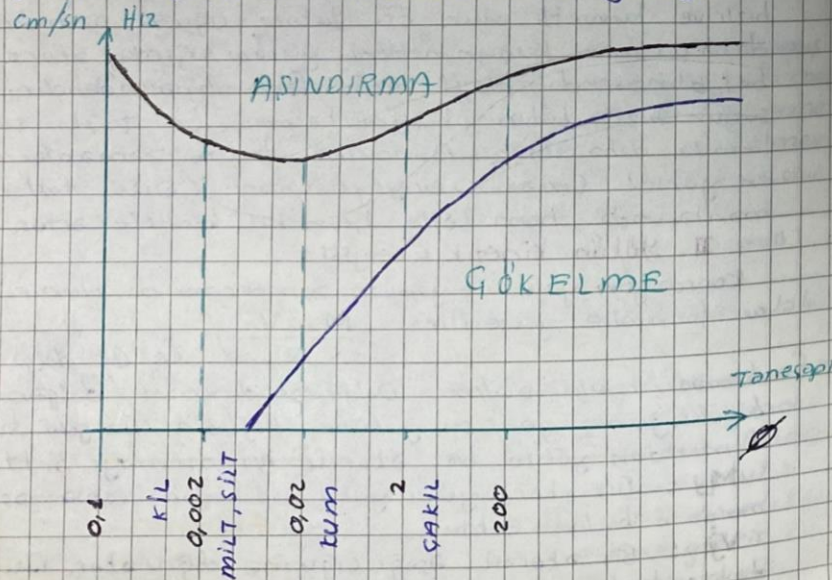 cm/sn Hız
AŞINDIRMA
ÇÖKELME
Ø
0,1
KİL
0,002
MİLT, SİLT
0,02
KUM
2
ÇAKIL
200